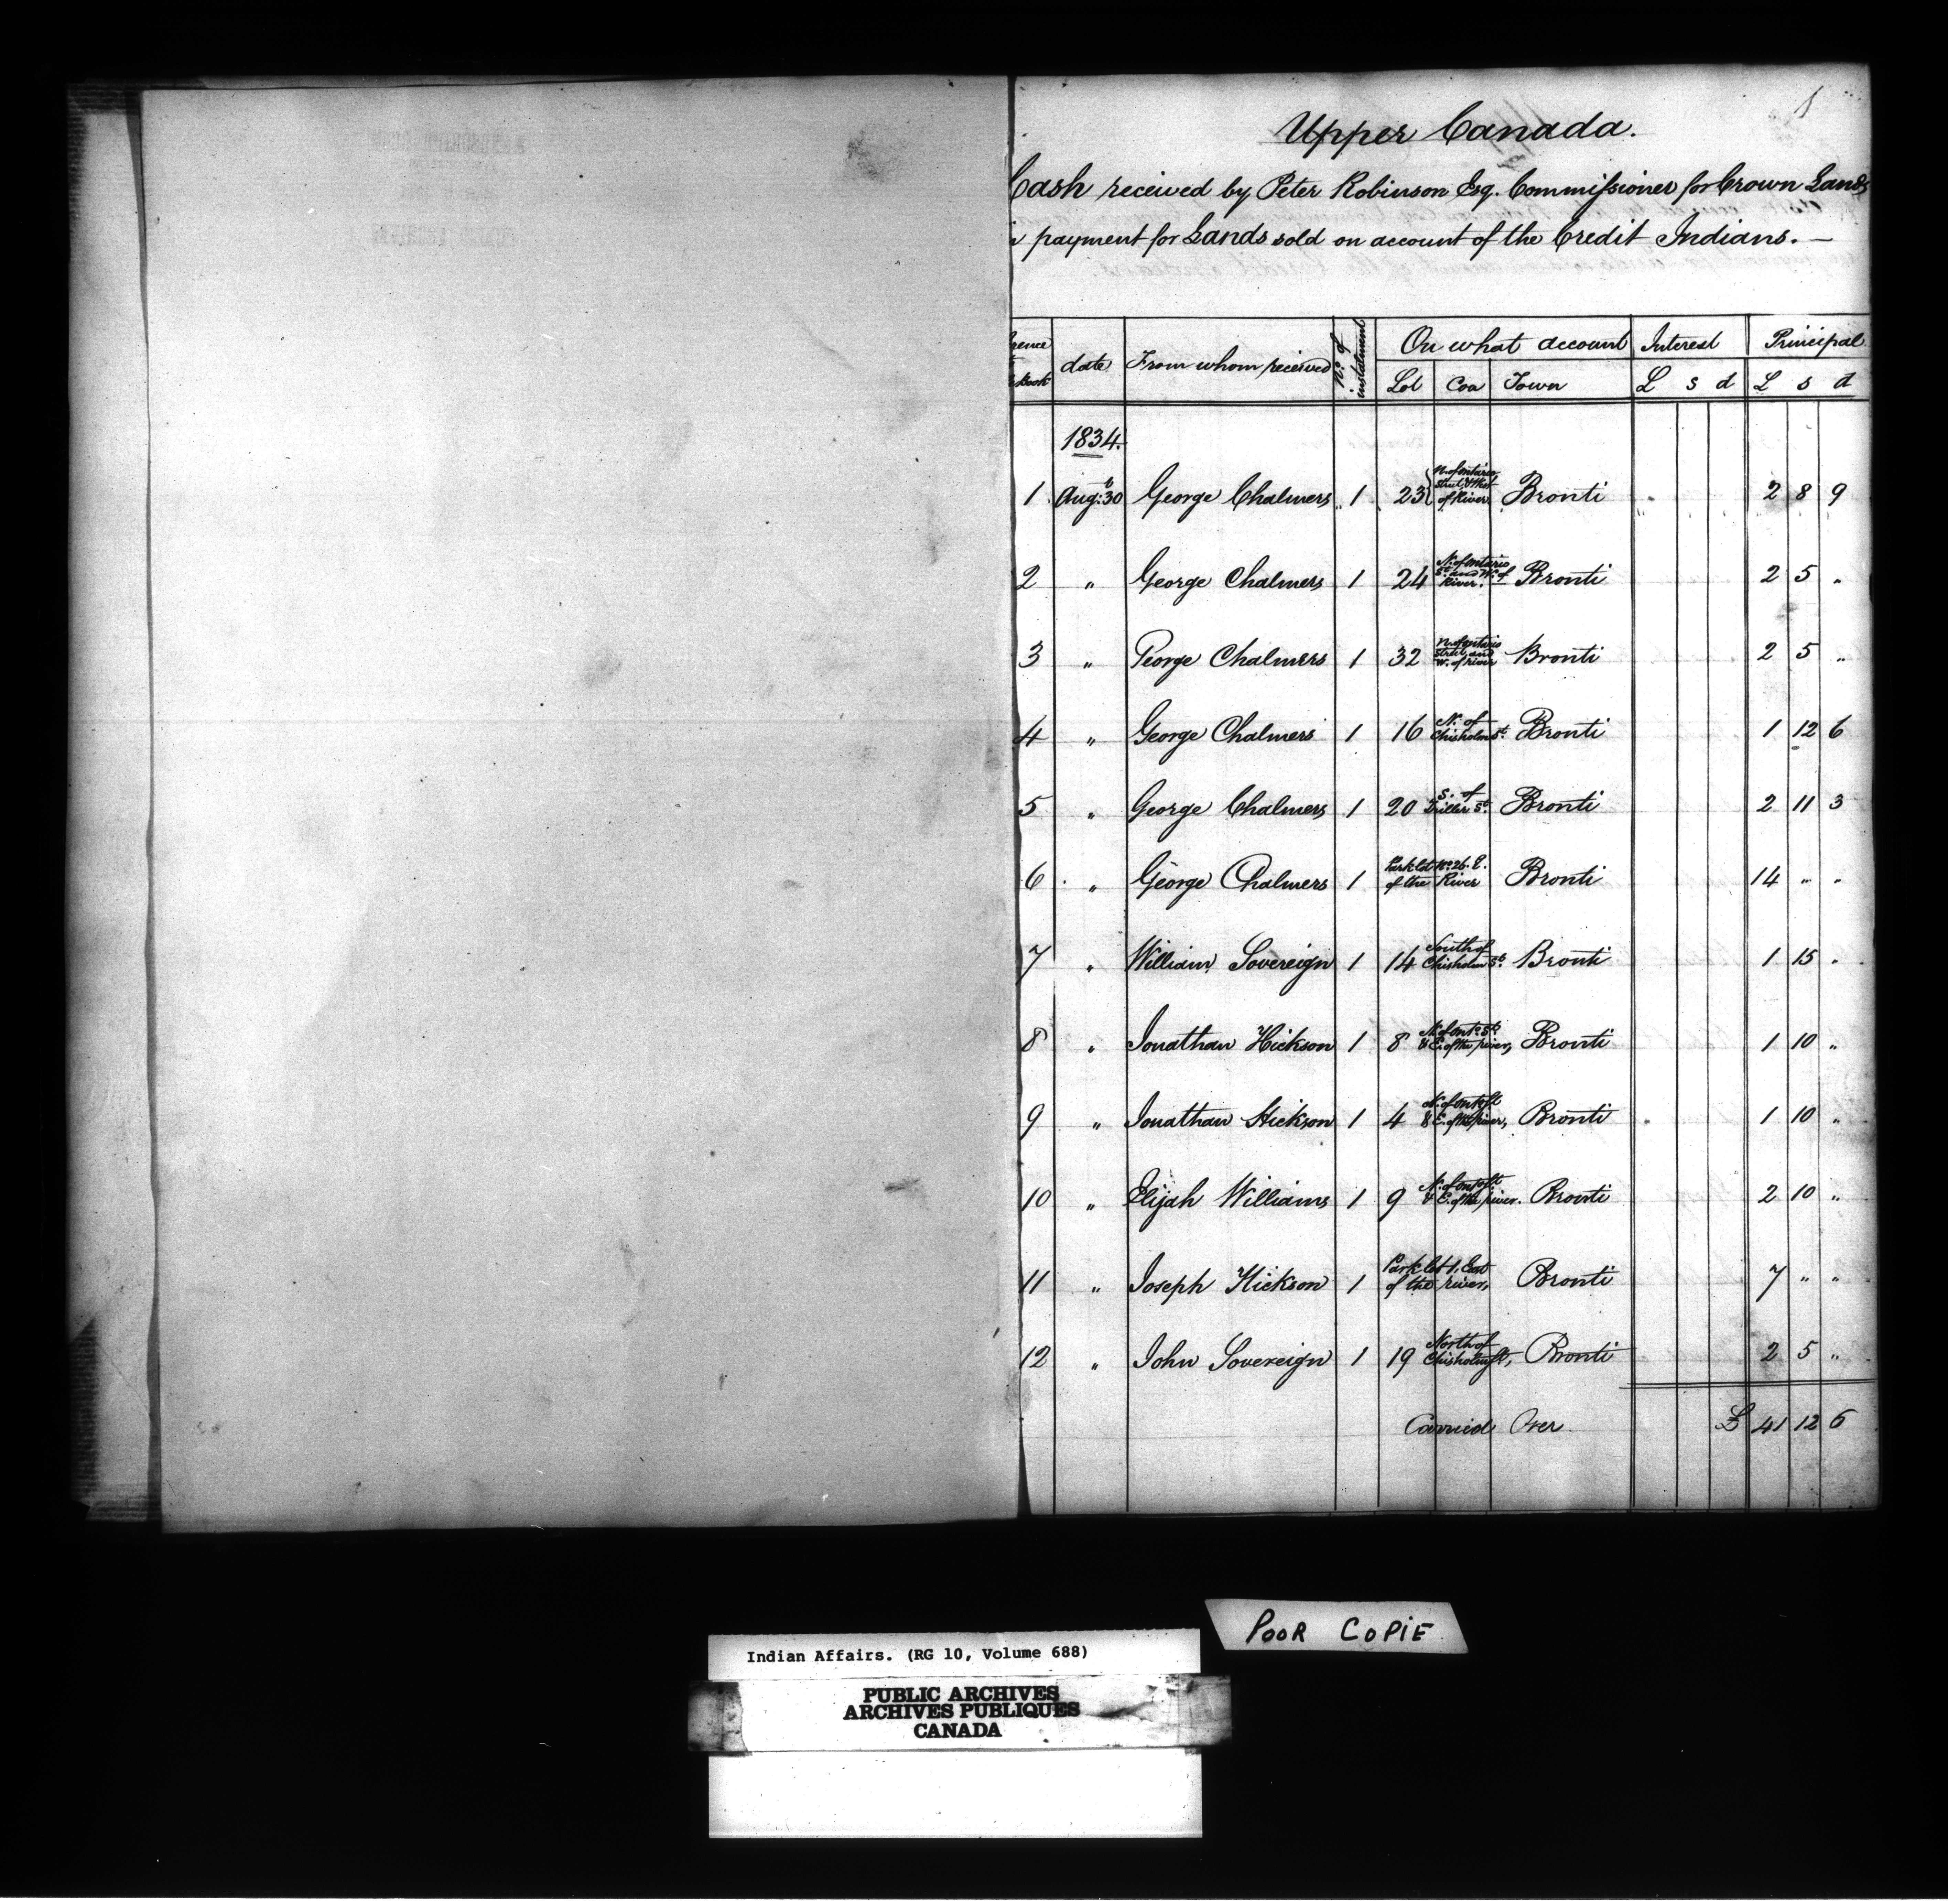 1
Upper Canada.
Cash received by Peter Robinson Esq. Commissioner for Crown Lands
payment for Lands sold on account of the Credit Indians. —
rence
Book
date
From whom received
No. of instalment
On what account
Lot Con Town
Interest
£ s d
Principal
£ s d
1834.
1 Augt: 30 George Chalmers 1 23 N. of Ontario Street & West of River Bronti 2 8 9
2 " George Chalmers 1 24 N. of Ontario St. and W. of River. Bronti 2 5 "
3 " George Chalmers 1 32 N. of Ontario Street and W. of river Bronti 2 5 "
4 " George Chalmers 1 16 N. of Chisholm St. Bronti 1 12 6
5 " George Chalmers 1 20 S. of Triller St. Bronti 2 11 3
6 " George Chalmers 1 Park Lot No. 26. E. of the River Bronti 14 " "
7 " William Sovereign 1 14 South of Chisholm St. Bronti 1 15 "
8 " Jonathan Hickson 1 8 N. of Onto. St. & E. of the river, Bronti 1 10 "
9 " Jonathan Hickson 1 4 N. of Onto St & E. of the river, Bronti 1 10 "
10 " Elijah Williams 1 9 N. of Onto St & E. of the river. Bronti 2 10 "
11 " Joseph Hickson 1 Park lot 1, East of the river, Bronti 7 " "
12 " John Sovereign 1 19 North of Chisholm St, Bronti 2 5 "
Carried Over £ 41 12 6
POOR COPIE
Indian Affairs. (RG 10, Volume 688)
PUBLIC ARCHIVES
ARCHIVES PUBLIQUES
CANADA